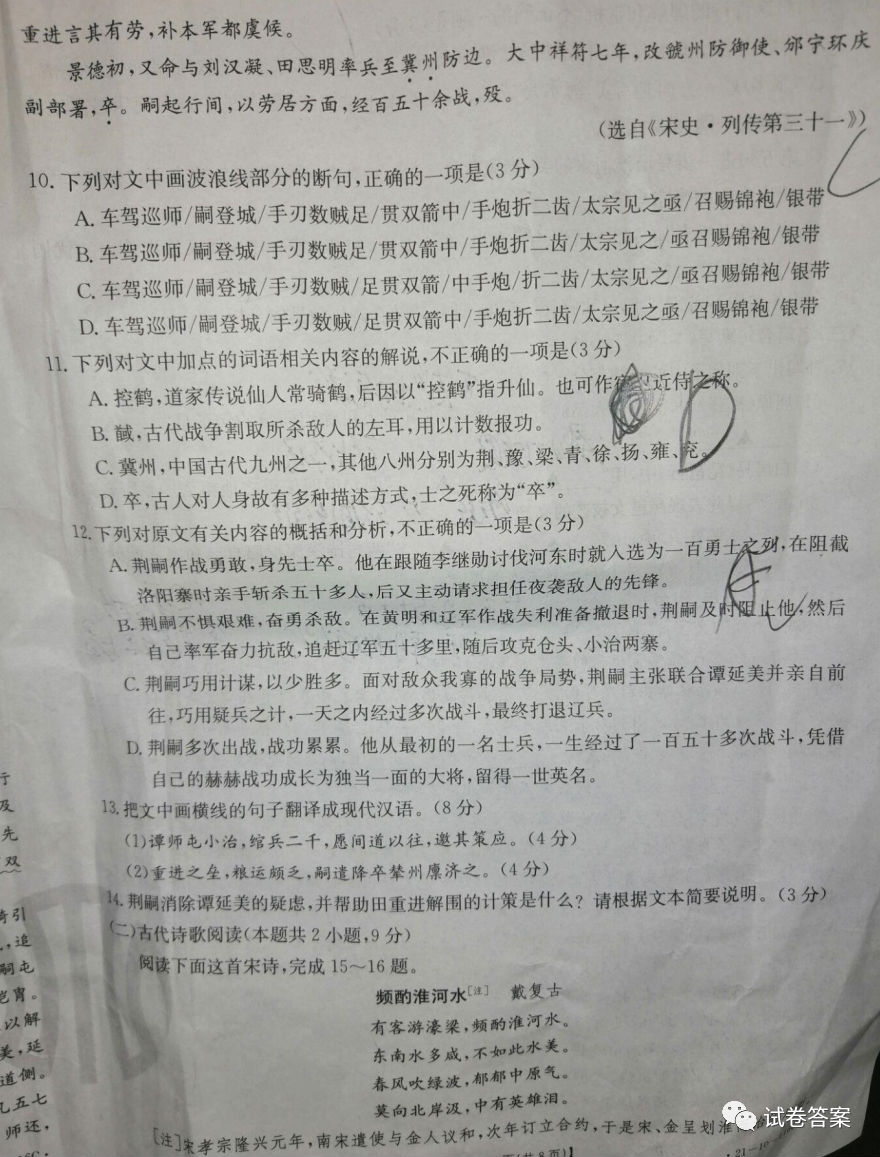 重进言其有劳,补本军都虞候。
景德初,又命与刘汉凝、田思明率兵至冀州防边。大中祥符七年,改虢州防御使、邠宁环庆
副部署,卒。嗣起行间,以劳居方面,经百五十余战,殁。
(选自《宋史·列传第三十一》)
10. 下列对文中画波浪线部分的断句,正确的一项是(3分)
A. 车驾巡师/嗣登城/手刃数贼足/贯双箭中/手炮折二齿/太宗见之亟/召赐锦袍/银带
B. 车驾巡师/嗣登城/手刃数贼足/贯双箭中/手炮折二齿/太宗见之/亟召赐锦袍/银带
C. 车驾巡师/嗣登城/手刃数贼/足贯双箭/中手炮/折二齿/太宗见之/亟召赐锦袍/银带
D. 车驾巡师/嗣登城/手刃数贼/足贯双箭中/手炮折二齿/太宗见之亟/召赐锦袍/银带
11. 下列对文中加点的词语相关内容的解说,不正确的一项是(3分)
A. 控鹤,道家传说仙人常骑鹤,后因以“控鹤”指升仙。也可作 近侍之称。
B. 馘,古代战争割取所杀敌人的左耳,用以计数报功。
C. 冀州,中国古代九州之一,其他八州分别为荆、豫、梁、青、徐、扬、雍、兖。
D. 卒,古人对人身故有多种描述方式,士之死称为“卒”。
12. 下列对原文有关内容的概括和分析,不正确的一项是(3分)
A. 荆嗣作战勇敢,身先士卒。他在跟随李继勋讨伐河东时就入选为一百勇士之列,在阻截
洛阳寨时亲手斩杀五十多人,后又主动请求担任夜袭敌人的先锋。
B. 荆嗣不惧艰难,奋勇杀敌。在黄明和辽军作战失利准备撤退时,荆嗣及时阻止他,然后
自己率军奋力抗敌,追赶辽军五十多里,随后攻克仓头、小治两寨。
C. 荆嗣巧用计谋,以少胜多。面对敌众我寡的战争局势,荆嗣主张联合谭延美并亲自前
往,巧用疑兵之计,一天之内经过多次战斗,最终打退辽兵。
D. 荆嗣多次出战,战功累累。他从最初的一名士兵,一生经过了一百五十多次战斗,凭借
自己的赫赫战功成长为独当一面的大将,留得一世英名。
13. 把文中画横线的句子翻译成现代汉语。(8分)
(1)谭师屯小治,绾兵二千,愿间道以往,邀其策应。(4分)
(2)重进之垒,粮运颇乏,嗣遣降卒辇州廪济之。(4分)
14. 荆嗣消除谭延美的疑虑,并帮助田重进解围的计策是什么?请根据文本简要说明。(3分)
(二)古代诗歌阅读(本题共2小题,9分)
阅读下面这首宋诗,完成15~16题。
频酌淮河水[注] 戴复古
有客游濠梁,频酌淮河水。
东南水多咸,不如此水美。
春风吹绿波,郁郁中原气。
莫向北岸汲,中有英雄泪。
[注]宋孝宗隆兴元年,南宋遣使与金人议和,次年订立合约,于是宋、金呈划淮
行
及
先
双
骑引
,追
嗣屯
铠胄。
以解
美,延
道侧。
凡五七
师还,
D
A
试卷答案